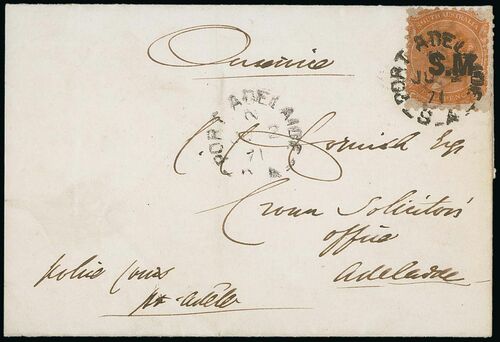 SOUTH AUSTRALIA
S.M.
PORT ADELAIDE
71
S A
On service
PORT ADELAIDE
71
Cornish Esq
Crown Solicitors
office
Adelaide
police Court
Pt Adel.